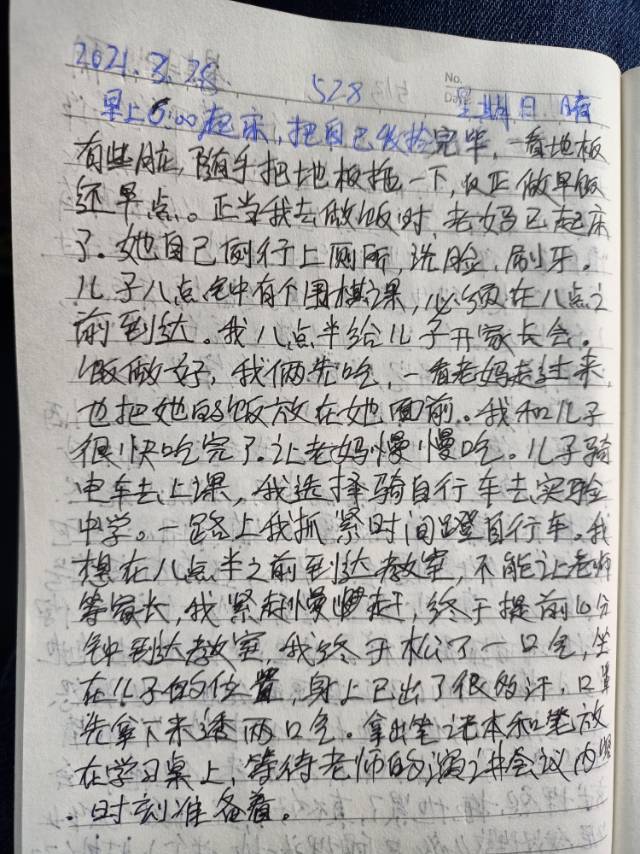 2021.3.28 528 No. 星期日 晴
早上6:00起床,把自己收拾完毕,一看地板
有些脏,随手把地板拖一下,反正做早饭
还早点。正当我去做饭时,老妈已起床
了.她自己例行上厕所,洗脸、刷牙。
儿子八点钟有个围棋课,必须在八点之
前到达。我八点半给儿子开家长会。
饭做好,我俩先吃,一看老妈走过来,
也把她的饭放在她面前。我和儿子
很快吃完了.让老妈慢慢吃。儿子骑
电车去上课,我选择骑自行车去实验
中学。一路上我抓紧时间蹬自行车。我
想在八点半之前到达教室,不能让老师
等家长,我紧赶慢赶,终于提前10分
钟到达教室,我终于松了一口气,坐
在儿子的位置,身上已出了很多汗,口罩
先拿下来透两口气.拿出笔记本和笔放
在学习桌上,等待老师的演讲会议内
.时刻准备着。